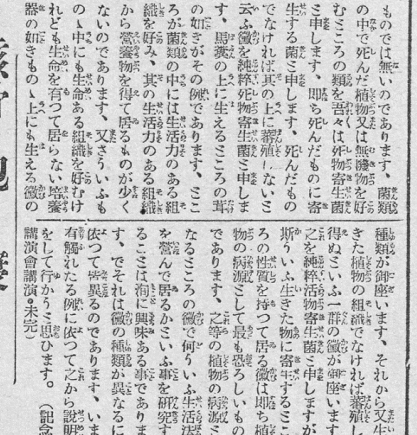 ものでは無いのであります、菌類
の中で死んだ植物又は無機物を好
むところの類を吾々は死物寄生菌
と申します、即ち死んだものに寄
生する菌と申します、死んだもの
でなければ其の上に蕃殖しないと
云ふ黴を純粹死物寄生菌と申しま
す、馬糞の上に生えるところの茸
の如きがその例であります、とこ
ろが菌類の中には生活力のある組
織を好み、其の生活力のある組織
から營養物を得て居るものが少く
ないのであります、又さういふも
のゝ中にも生命ある組織を好むけ
れども生命を有つて居らない培養
器の如きものゝ上にも生える黴の
種類が御座います、それから又生
きた植物の組織でなければ蕃殖し
得ぬといふ一群の黴が御座います
之を純粹活物寄生菌と申しますが
斯ういふ生きた物に寄生するとこ
ろの性質を持つて居る黴は即ち植
物の病源として最も恐ろしいもの
であります、之等の植物の病源と
なるところの黴で何ういふ生活法
を營んで居るかといふ事を研究す
ることは洵に興味ある事でありま
す、でそれは黴の種類が異なるに
依つて皆異るのであります、いま
有觸れたる例に依つてこれから說明
をして行かうと思ひます。(記念
講演會講演・未完)